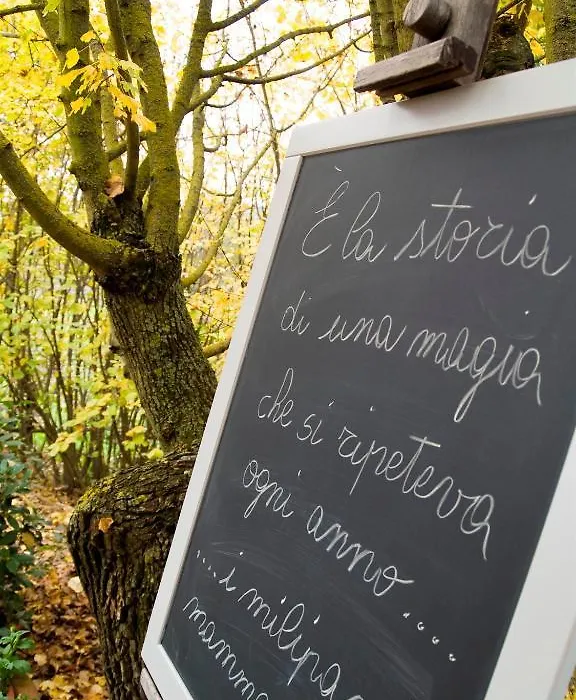 È la storia
di una magia
che si ripeteva
ogni anno....
....i milipa
mamme